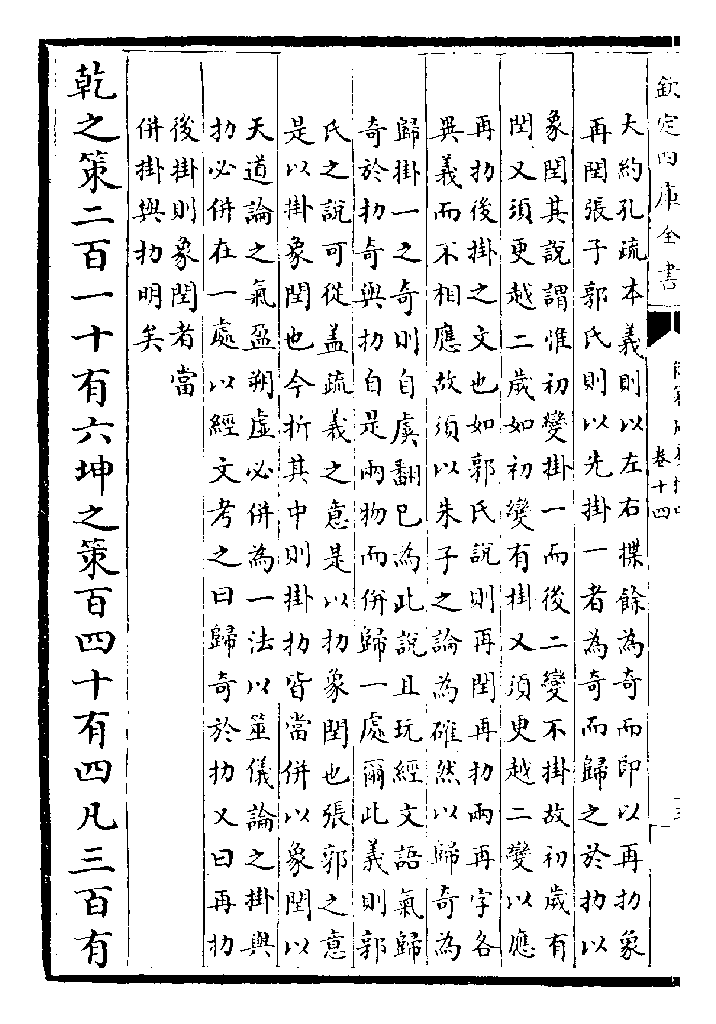 欽定四庫全書
卷十四
大約孔疏本義則以左右揲餘為奇而即以再扐象
再閏張子郭氏則以先掛一者為奇而歸之於扐以
象閏其說謂惟初變掛一而後二變不掛故初歲有
閏又須更越二歲如初變有掛又須更越二變以應
再扐後掛之文也如郭氏說則再閏再扐兩再字各
異義而不相應故須以朱子之論為確然以歸奇為
歸掛一之奇則自虞翻已為此說且玩經文語氣歸
奇於扐奇與扐自是兩物而併歸一處爾此義則郭
氏之說可從蓋疏義之意是以扐象閏也張郭之意
是以掛象閏也今折其中則掛扐皆當併以象閏以
天道論之氣盈朔虛必併為一法以筮儀論之掛與
扐必併在一處以經文考之曰歸奇於扐又曰再扐
後掛則象閏者當
併掛與扐明矣
乾之策二百一十有六坤之策百四十有四凡三百有